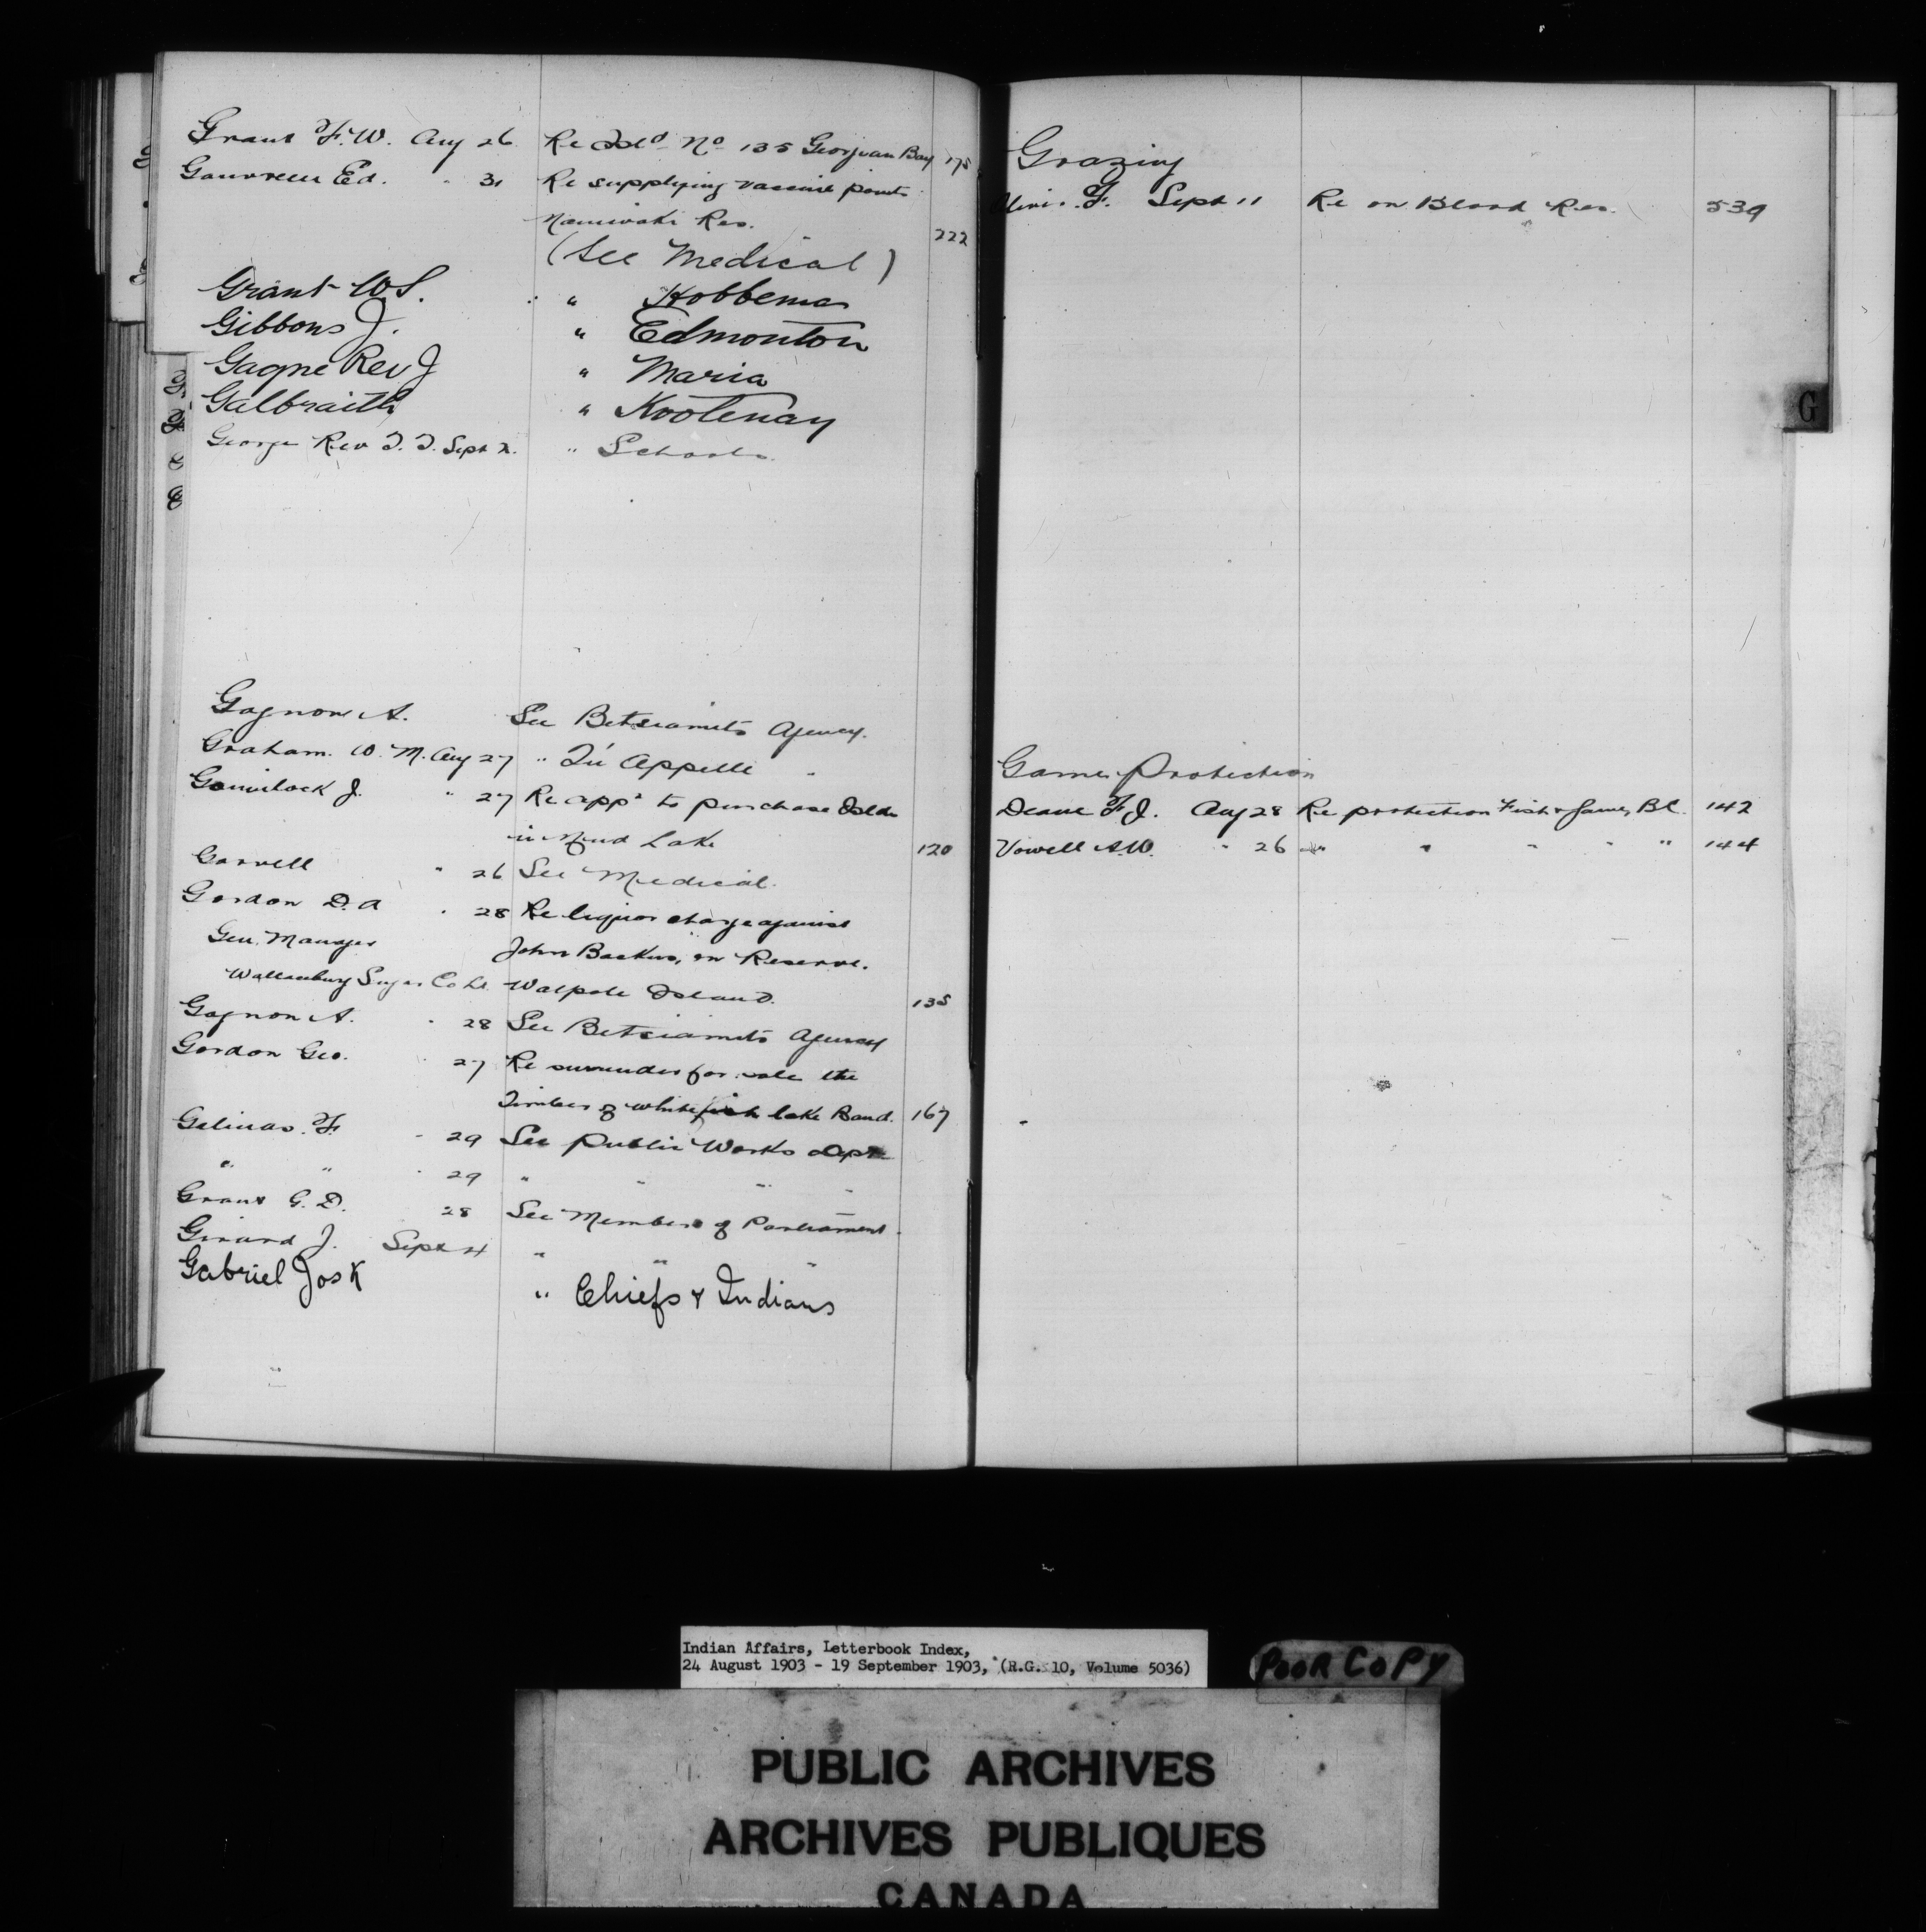 Grant F. W. Aug 26 Re Isld No 135 Georgian Bay 175
Gauvreau Ed. " 31 Re supplying vaccine points
Maniwaki Res. 222
(See Medical)
Grant W S. " Hobbema
Gibbons J. " Edmonton
Gagne Rev J " Maria
Galbraith " Kootenay
George Rev T. T. Sept 2. " Schools
Gagnon A. See Betsiamits Agency.
Graham. W. M. Aug 27 " Qu'Appelle "
J. " 27 Re appn to purchase Islds
in Mud Lake 120
" 26 See Medical.
Gordon D. A " 28 Re liquor charge against
Gen. Manager John Backus, on Reserve.
Wallaceburg Sugar Co Ld. Walpole Island. 135
Gagnon A. " 28 See Betsiamits Agency
Gordon Geo. " 27 Re surrender for sale the
Timber of Whitefish lake Band. 167
Gelinas. F. " 29 See Public Works Dept
" " " 29 " " " "
Grant G. D. 28 See Members of Parliament.
Girard J. Sept 4 " " "
Gabriel Jos K " Chiefs & Indians
Grazing
F. Sept 11 Re on Blood Res. 539
Game Protection
Deane F. J. Aug 28 Re protection Fish & Game, B.C. 142
Vowell A. W. " 26 " " " " " 144
G
Indian Affairs, Letterbook Index,
24 August 1903 - 19 September 1903, (R.G. 10, Volume 5036)
POOR COPY
PUBLIC ARCHIVES
ARCHIVES PUBLIQUES
CANADA